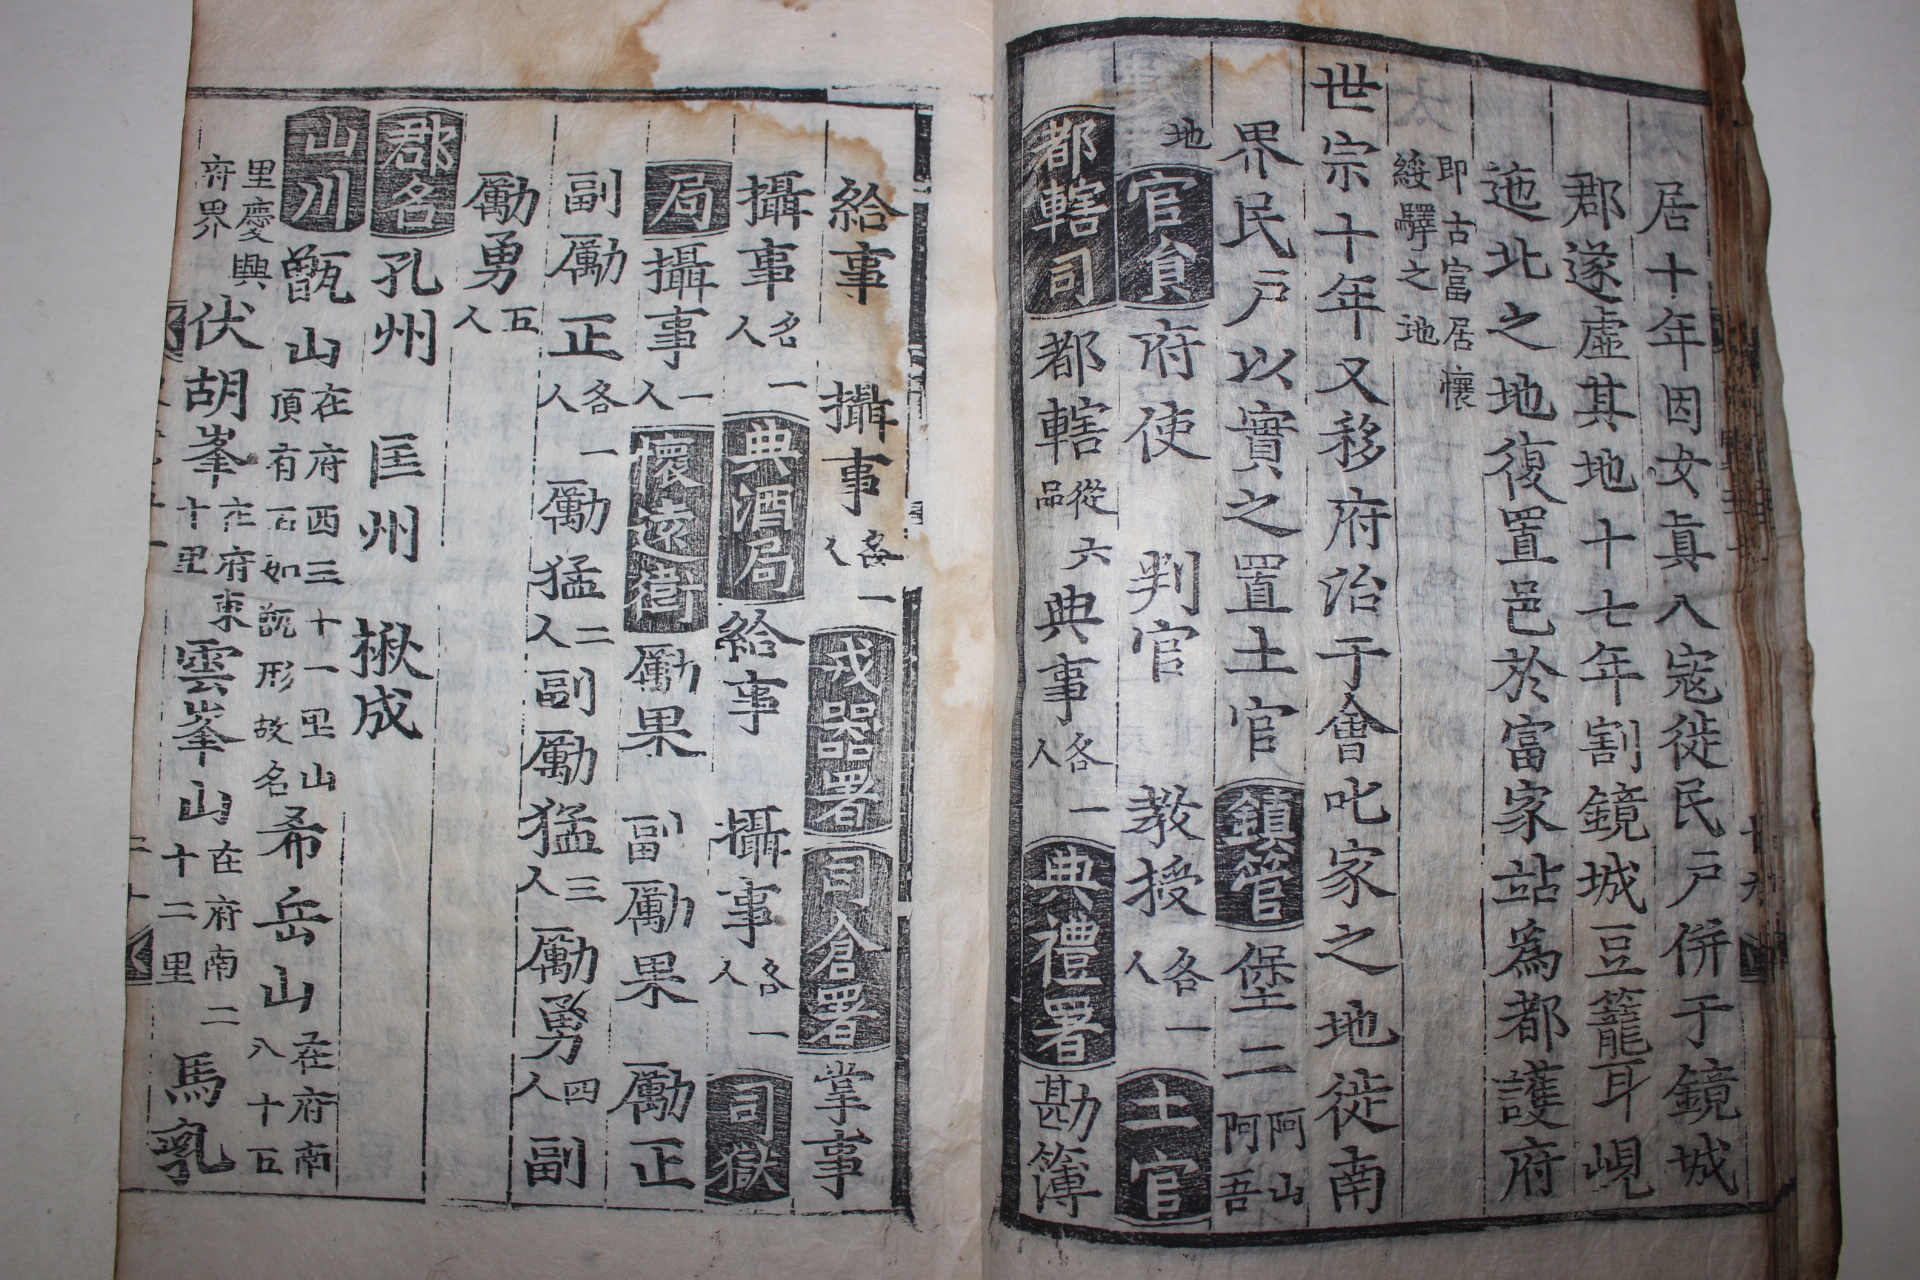 居十年因女眞入寇徙民戶倂于鏡城
郡遂虛其地十七年割鏡城豆籠耳峴
迤北之地復置邑於富家站爲都護府
即古富居懷
綏驛之地
世宗十年又移府治于會叱家之地徙南
界民戶以實之置土官 鎭管 堡二 阿山
阿吾
地 官員 府使 判官 敎授 各一
人 土官
都轄司 都轄 從六
品 典事 各一
人 典禮署 勘簿
給事 攝事 各一
人 戎器署 司倉署 掌事
攝事 各一
人 典酒局 給事 攝事 各一
人 司獄
局 攝事 一
人 懷遠衛 勵果 副勵果 勵正
副勵正 各一
人 勵猛 二
人 副勵猛 三
人 勵勇 四
人 副
勵勇 五
人
郡名 孔州 匡州 楸城
山川 甑山 在府西三十一里山
頂有石如甑形故名 希岳山 在府南
八十五
里慶興
府界 伏胡峯 在府東
十里 雲峯山 在府南二
十二里 馬乳